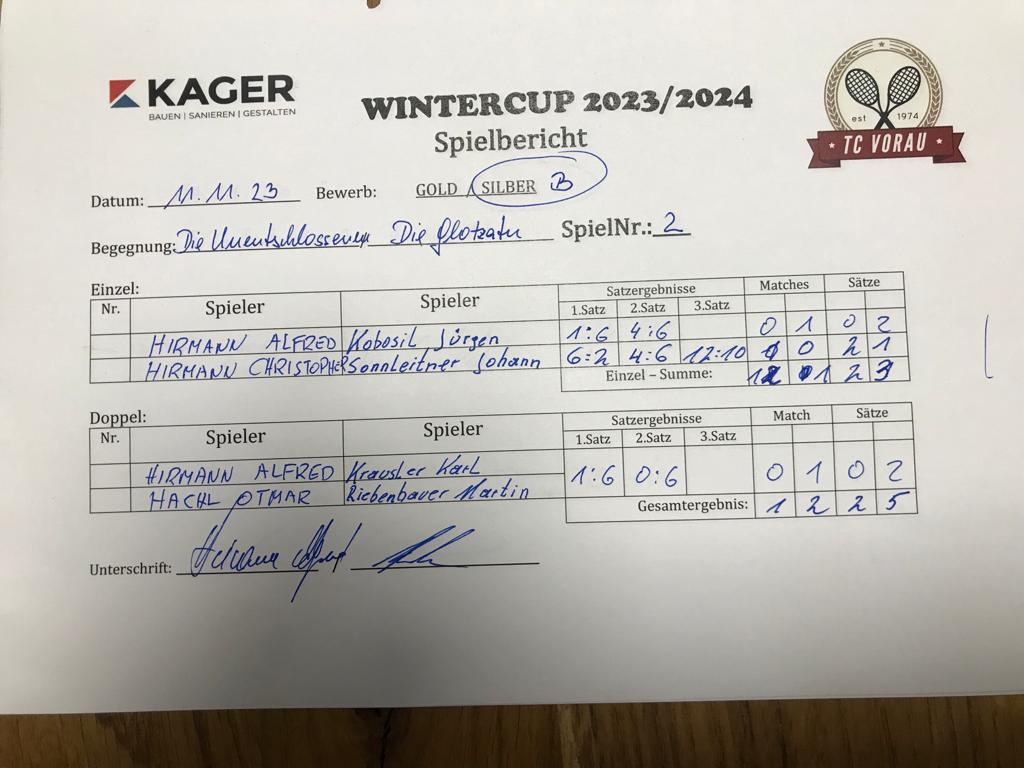 KAGER
BAUEN | SANIEREN | GESTALTEN
WINTERCUP 2023/2024
Spielbericht
est 1974
TC VORAU
Datum: 11.11.23 Bewerb: GOLD / SILBER B
Begegnung: Die Unentschlossenen Die SpielNr.: 2
Einzel:
Nr. Spieler Spieler Satzergebnisse Matches Sätze
1.Satz 2.Satz 3.Satz
HIRMANN ALFRED Kobosil Jürgen 1:6 4:6 0 1 0 2
HIRMANN CHRISTOPHER Sonnleitner Johann 6:2 4:6 12:10 0 2 1
Einzel – Summe: 1 1 2 3
Doppel:
Nr. Spieler Spieler Satzergebnisse Match Sätze
1.Satz 2.Satz 3.Satz
HIRMANN ALFRED Krausler Karl 1:6 0:6 0 1 0 2
HACHL OTMAR Riebenbauer Martin
Gesamtergebnis: 1 2 2 5
Unterschrift: